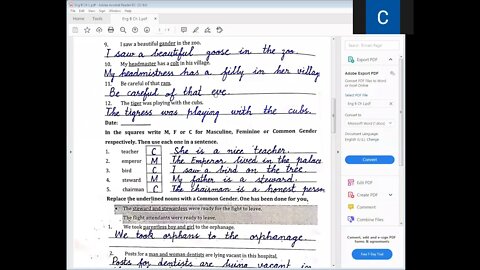 Eng B Ch 1.pdf - Adobe Acrobat Reader DC
Home Tools Eng B Ch 1.pdf
9. I saw a beautiful gander in the zoo.
I saw a beautiful goose in the zoo.
10. My headmaster has a colt in his village.
My headmistress has a filly in her villag
11. Be careful of that ram.
Be careful of that ewe.
12. The tiger was playing with the cubs.
The tigress was playing with the cubs.
Date:
In the squares write M, F or C for Masculine, Feminine or Common Gender
respectively. Then use each one in a sentence.
1. teacher C She is a nice teacher.
2. emperor M The Emperor lived in the palace
3. bird C I saw a bird on the tree.
4. steward M My father is a steward.
5. chairman C The chairman is a honest person
Replace the underlined nouns with a Common Gender. One has been done for you,
• The steward and stewardess were ready for the flight to leave.
The flight attendants were ready to leave.
1. We took parentless boy and girl to the orphanage.
We took orphans to the orphanage.
2. Posts for a man and woman dentists are lying vacant in this hospital.
Posts for dentists are lying vacant in
C
Export PDF
Adobe Export PDF
Convert PDF Files to Word
or Excel Online
Select PDF File
Eng B Ch 1.pdf
Convert to
Microsoft Word (*.docx)
Document Language:
English (U.S.) Change
Convert
Create PDF
Edit PDF
Comment
Combine Files
Convert, edit and e-sign PDF
forms & agreements
Free 7-Day Trial